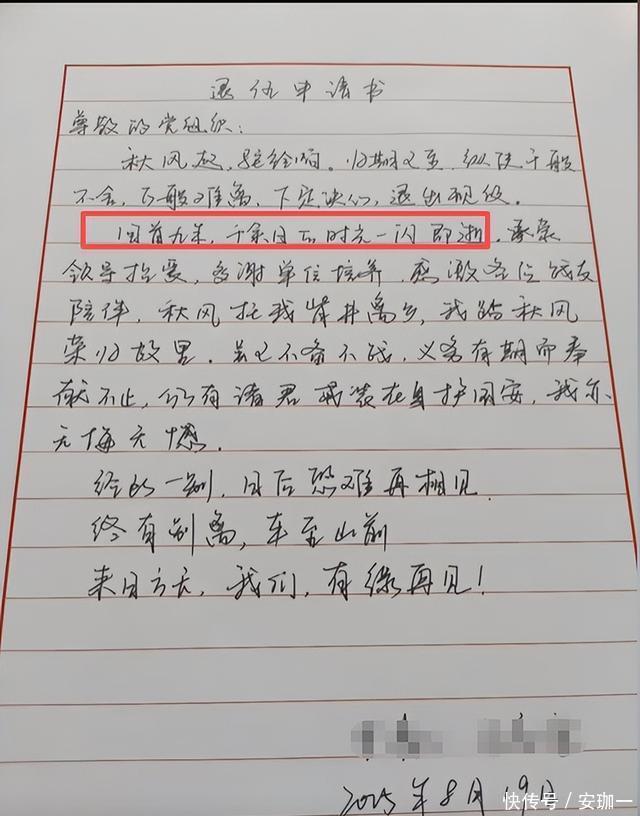 退伍申请书
尊敬的党组织：
秋风起，驼铃响。归期又至，纵使千般
不舍，万般难离，下定决心，退出现役。
回首九年，千余日子时光一闪即逝，承蒙
领导抬爱，多谢单位培养，感激各位战友
陪伴，秋风托我背井离乡，我踏秋风
荣归故里。若又不备不战，义务有期而奉
献不止，仍有诸君戎装在身护国安，我亦
无悔无憾。
一别，日后恐难再相见
终有别离，车至山前
来日方长，我们，有缘再见！
2025年8月19日
快传号/安珈一